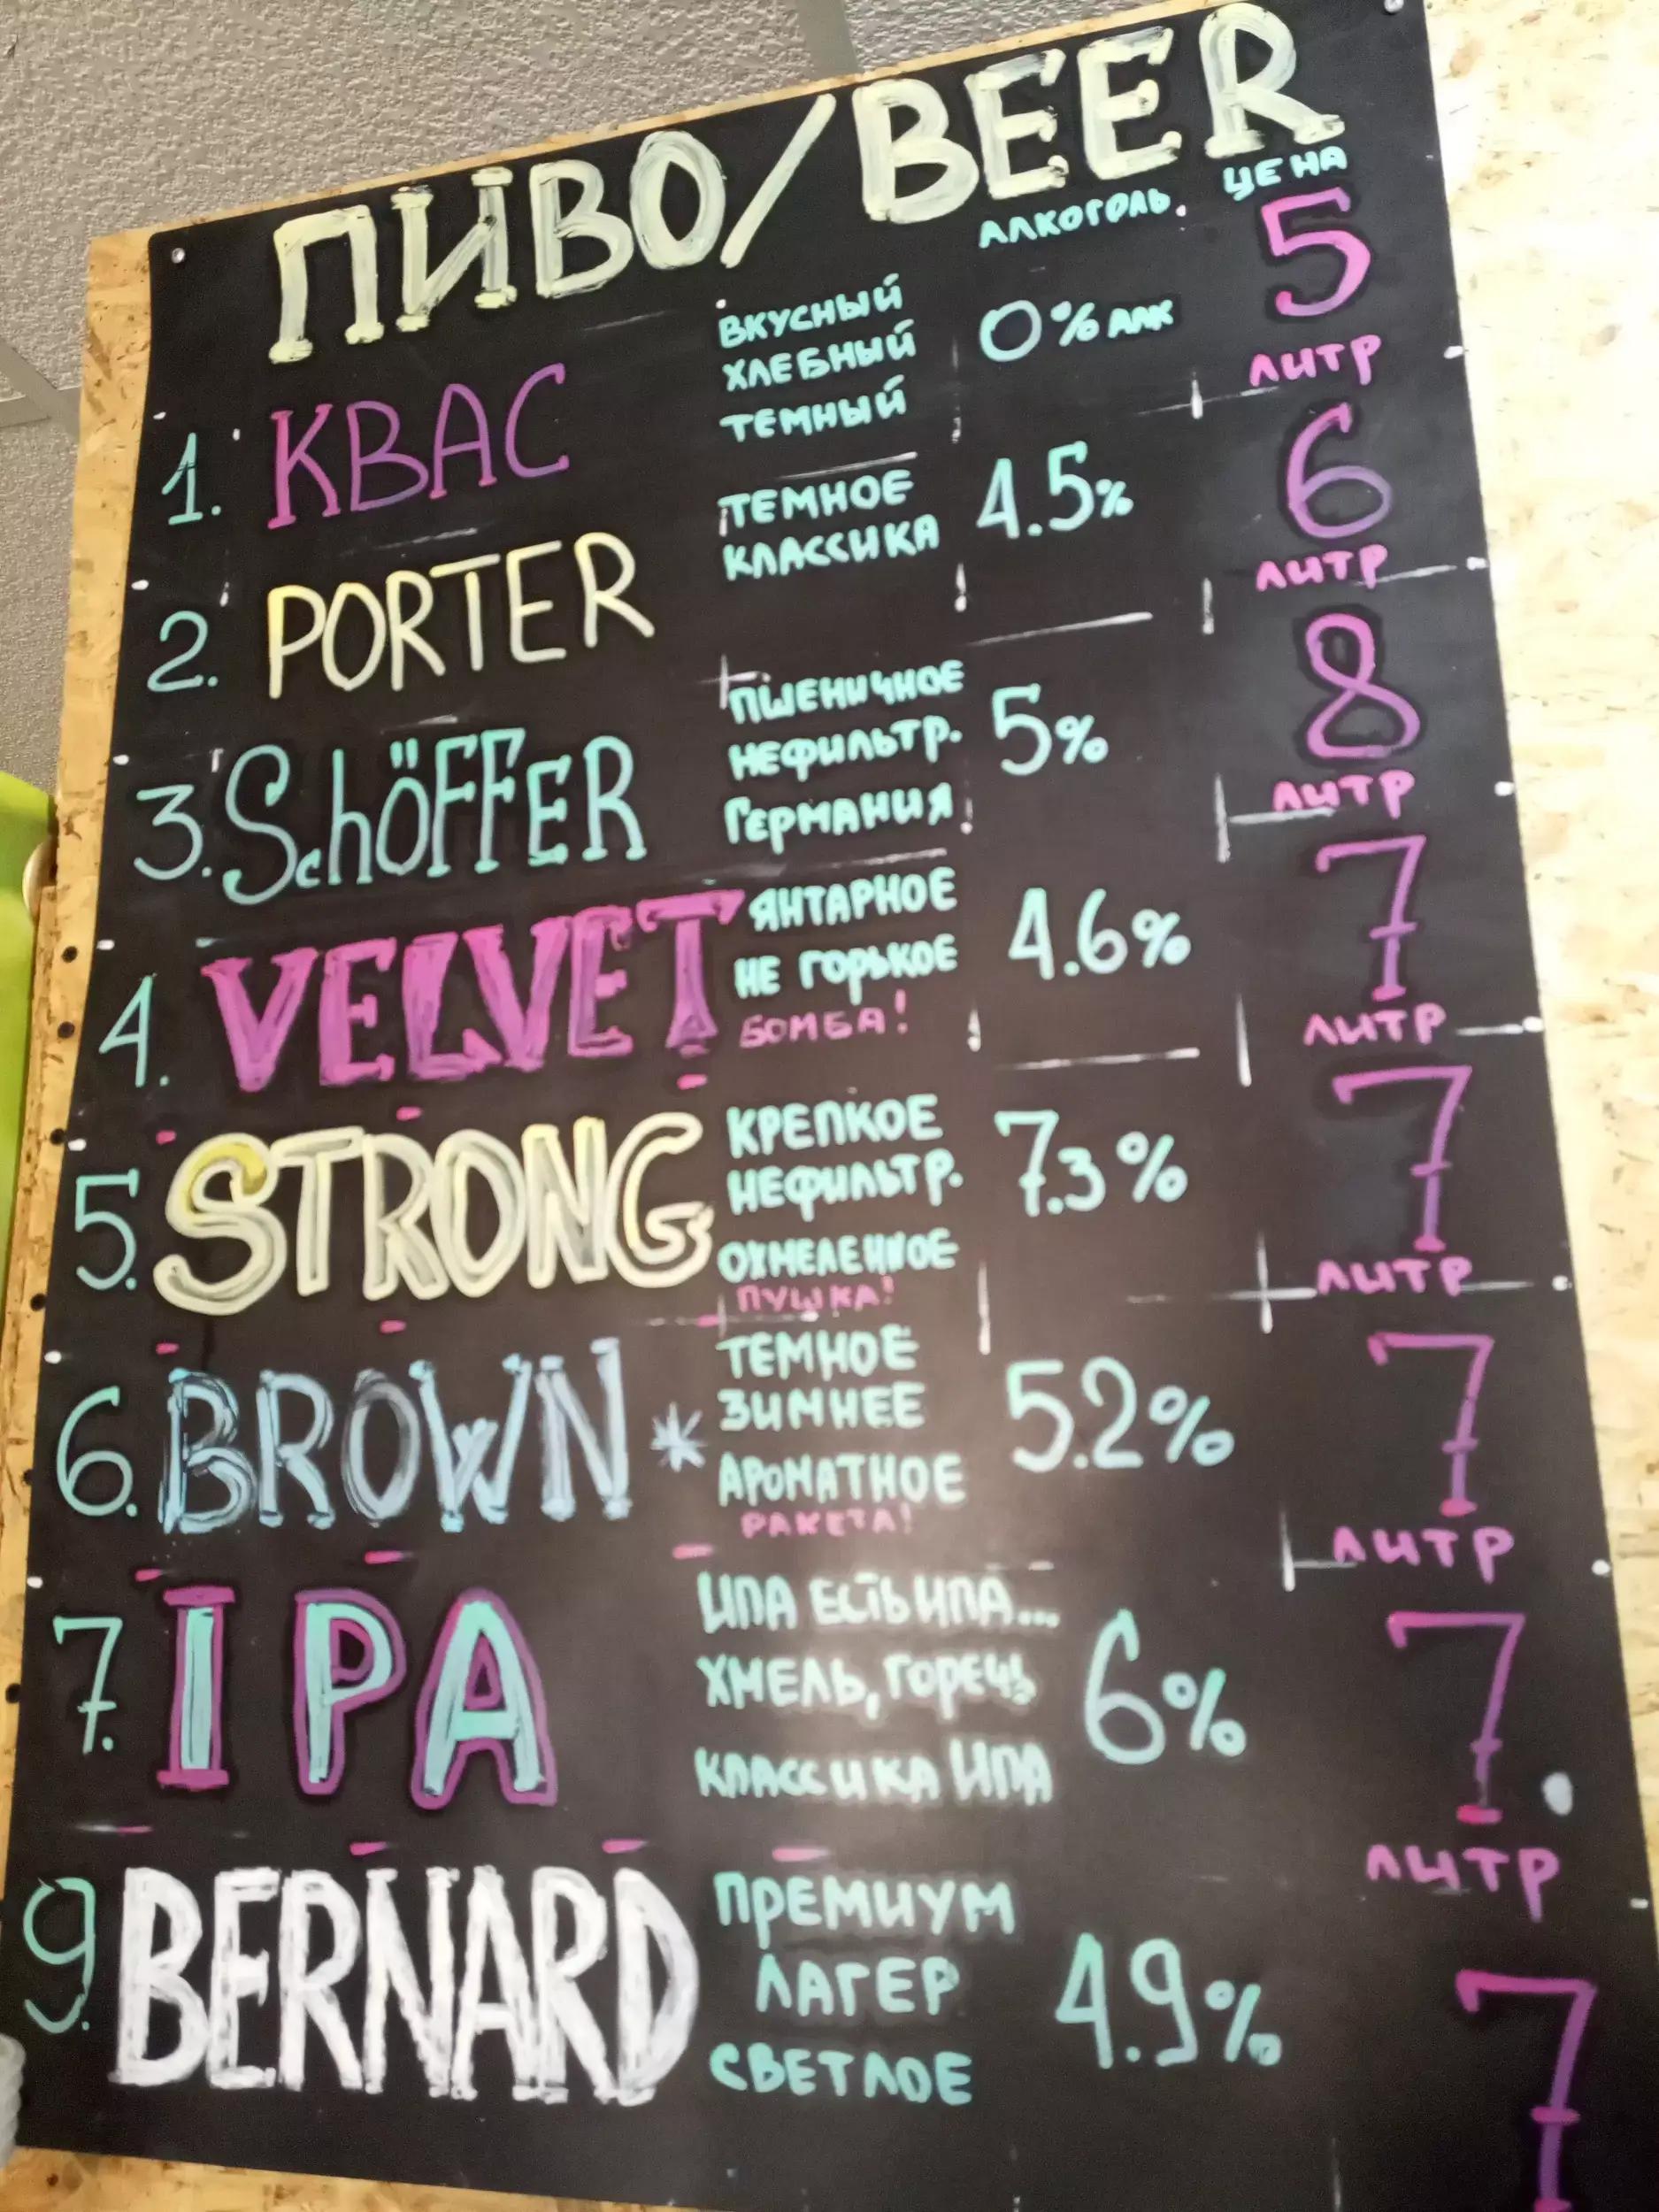 ПИВО/BEER
АЛКОГОЛЬ. ЦЕНА
1. КВАС
ВКУСНЫЙ
ХЛЕБНЫЙ
ТЕМНЫЙ
0% АЛК
5
ЛИТР
2. PORTER
ТЕМНОЕ
КЛАССИКА
4.5%
6
ЛИТР
3. SchÖFFER
ПШЕНИЧНОЕ
НЕФИЛЬТР.
ГЕРМАНИЯ
5%
8
ЛИТР
4. VELVET
ЯНТАРНОЕ
НЕ ГОРЬКОЕ
БОМБА!
4.6%
7
ЛИТР
5. STRONG
КРЕПКОЕ
НЕФИЛЬТР.
ОХМЕЛЕННОЕ
ПУШКА!
7.3%
7
ЛИТР
6. BROWN *
ТЕМНОЕ
ЗИМНЕЕ
АРОМАТНОЕ
РАКЕТА!
5.2%
7
ЛИТР
7. IPA
ИПА ЕСТЬ ИПА...
ХМЕЛЬ, ГОРЕЧЬ
КЛАССИКА ИПА
6%
7
ЛИТР
9. BERNARD
ПРЕМИУМ
ЛАГЕР
СВЕТЛОЕ
4.9%
7